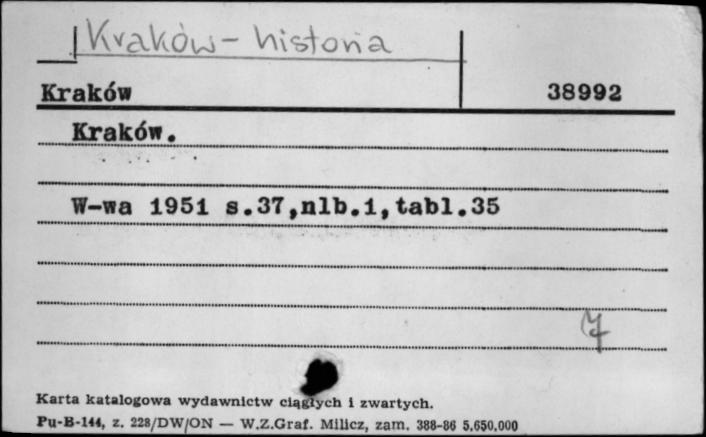 Kraków - historia
Kraków 38992
Kraków.
W-wa 1951 s.37,nlb.1,tabl.35
Karta katalogowa wydawnictw ciągłych i zwartych.
Pu-B-144, z. 228/DW/ON — W.Z.Graf. Milicz, zam. 388-86 5.650.000